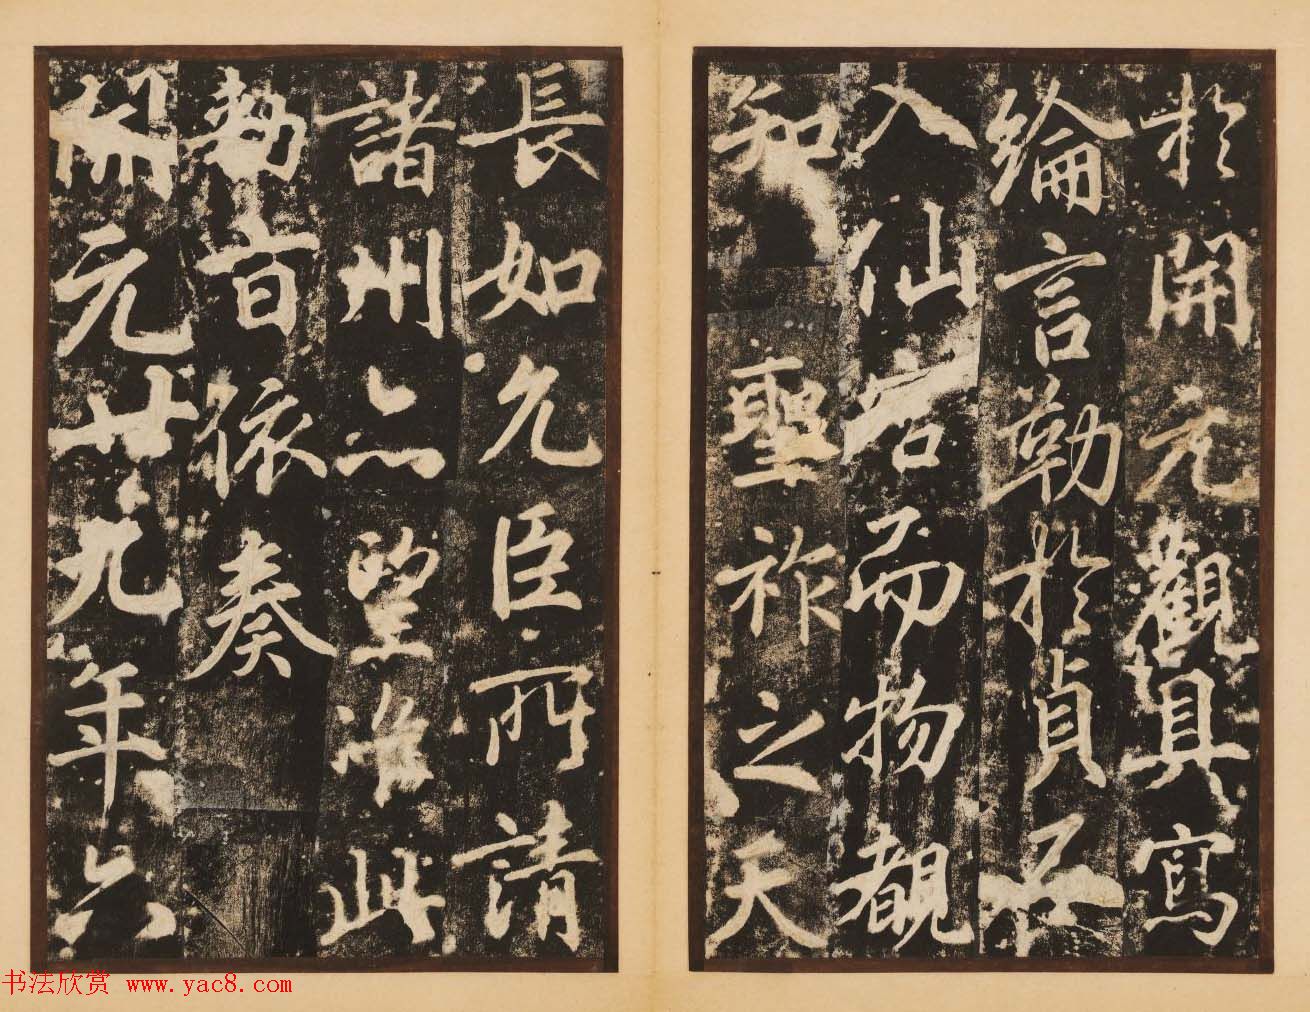 於開元觀具寫
綸言勒於貞石
入仙宮而物覩
知聖祚之天
長如允臣所請
諸州亦望准此
勑旨依奏
開元廿九年六
书法欣赏 www.yac8.com